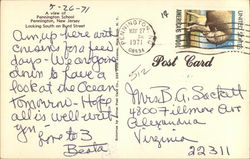 7-26-71
A view of
Pennington School
Pennington, New Jersey
Looking South on Burd Street
Am up here with
cousins for a few
days - We are goin
down to have a
look at the Ocean
tomorrow - Hope
all is well with
yn.
Love to 3
Beata
PENNINGTON, NJ
MAY 27
1971
Post Card
Mrs B G. Beckett
4800 Fillmore Ave
Alexandria
Virginia
22311